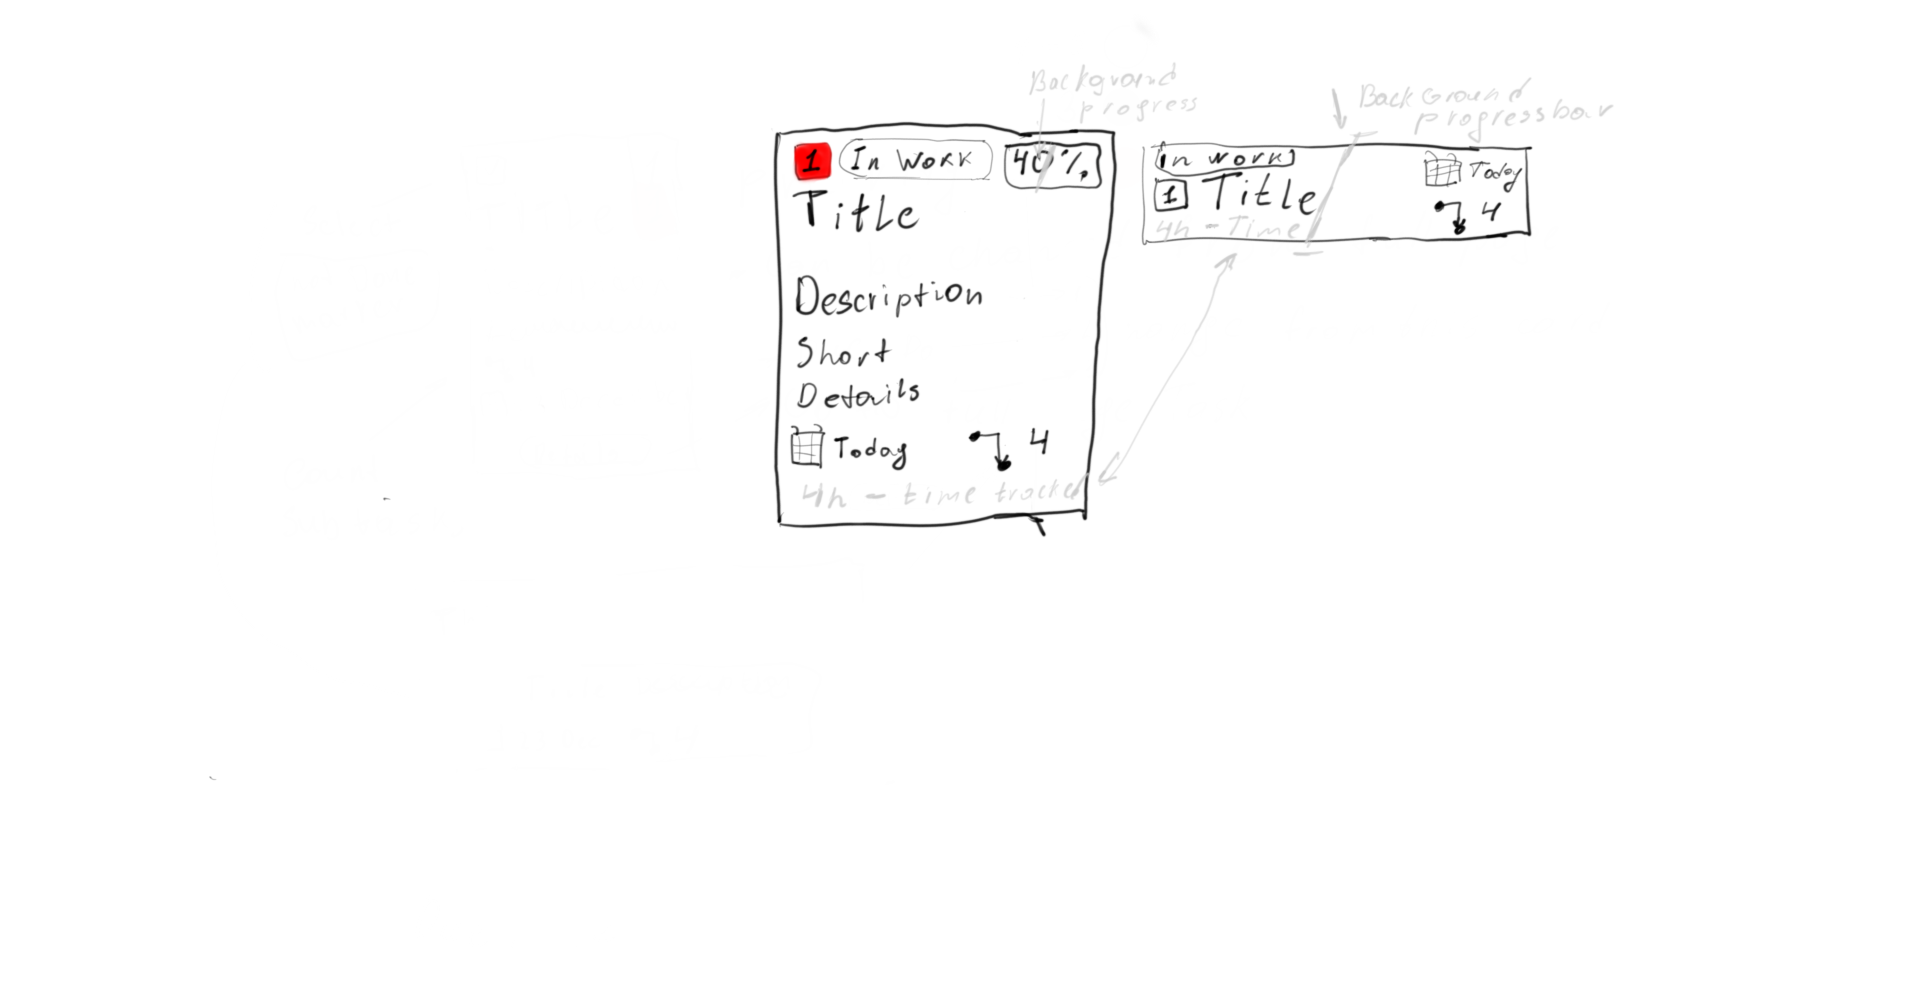 Background
progress
1 In Work 40%
Title
Description
Short
Details
Today 4
4h - time tracked
Back Ground
progressbar
In work
1 Title
4h - Time
Today
4